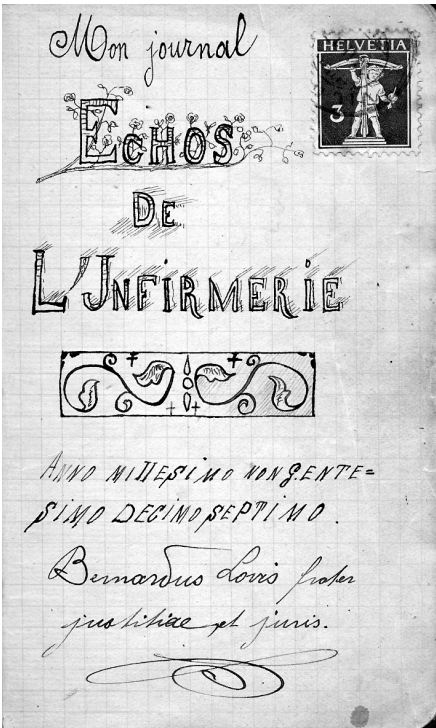 Mon journal
HELVETIA
3
ECHOS
DE
L'INFIRMERIE
ANNO MILLESIMO NONGENTE=
SIMO DECIMO SEPTIMO.
Bernardus Lovis frater
justitiae et juris.